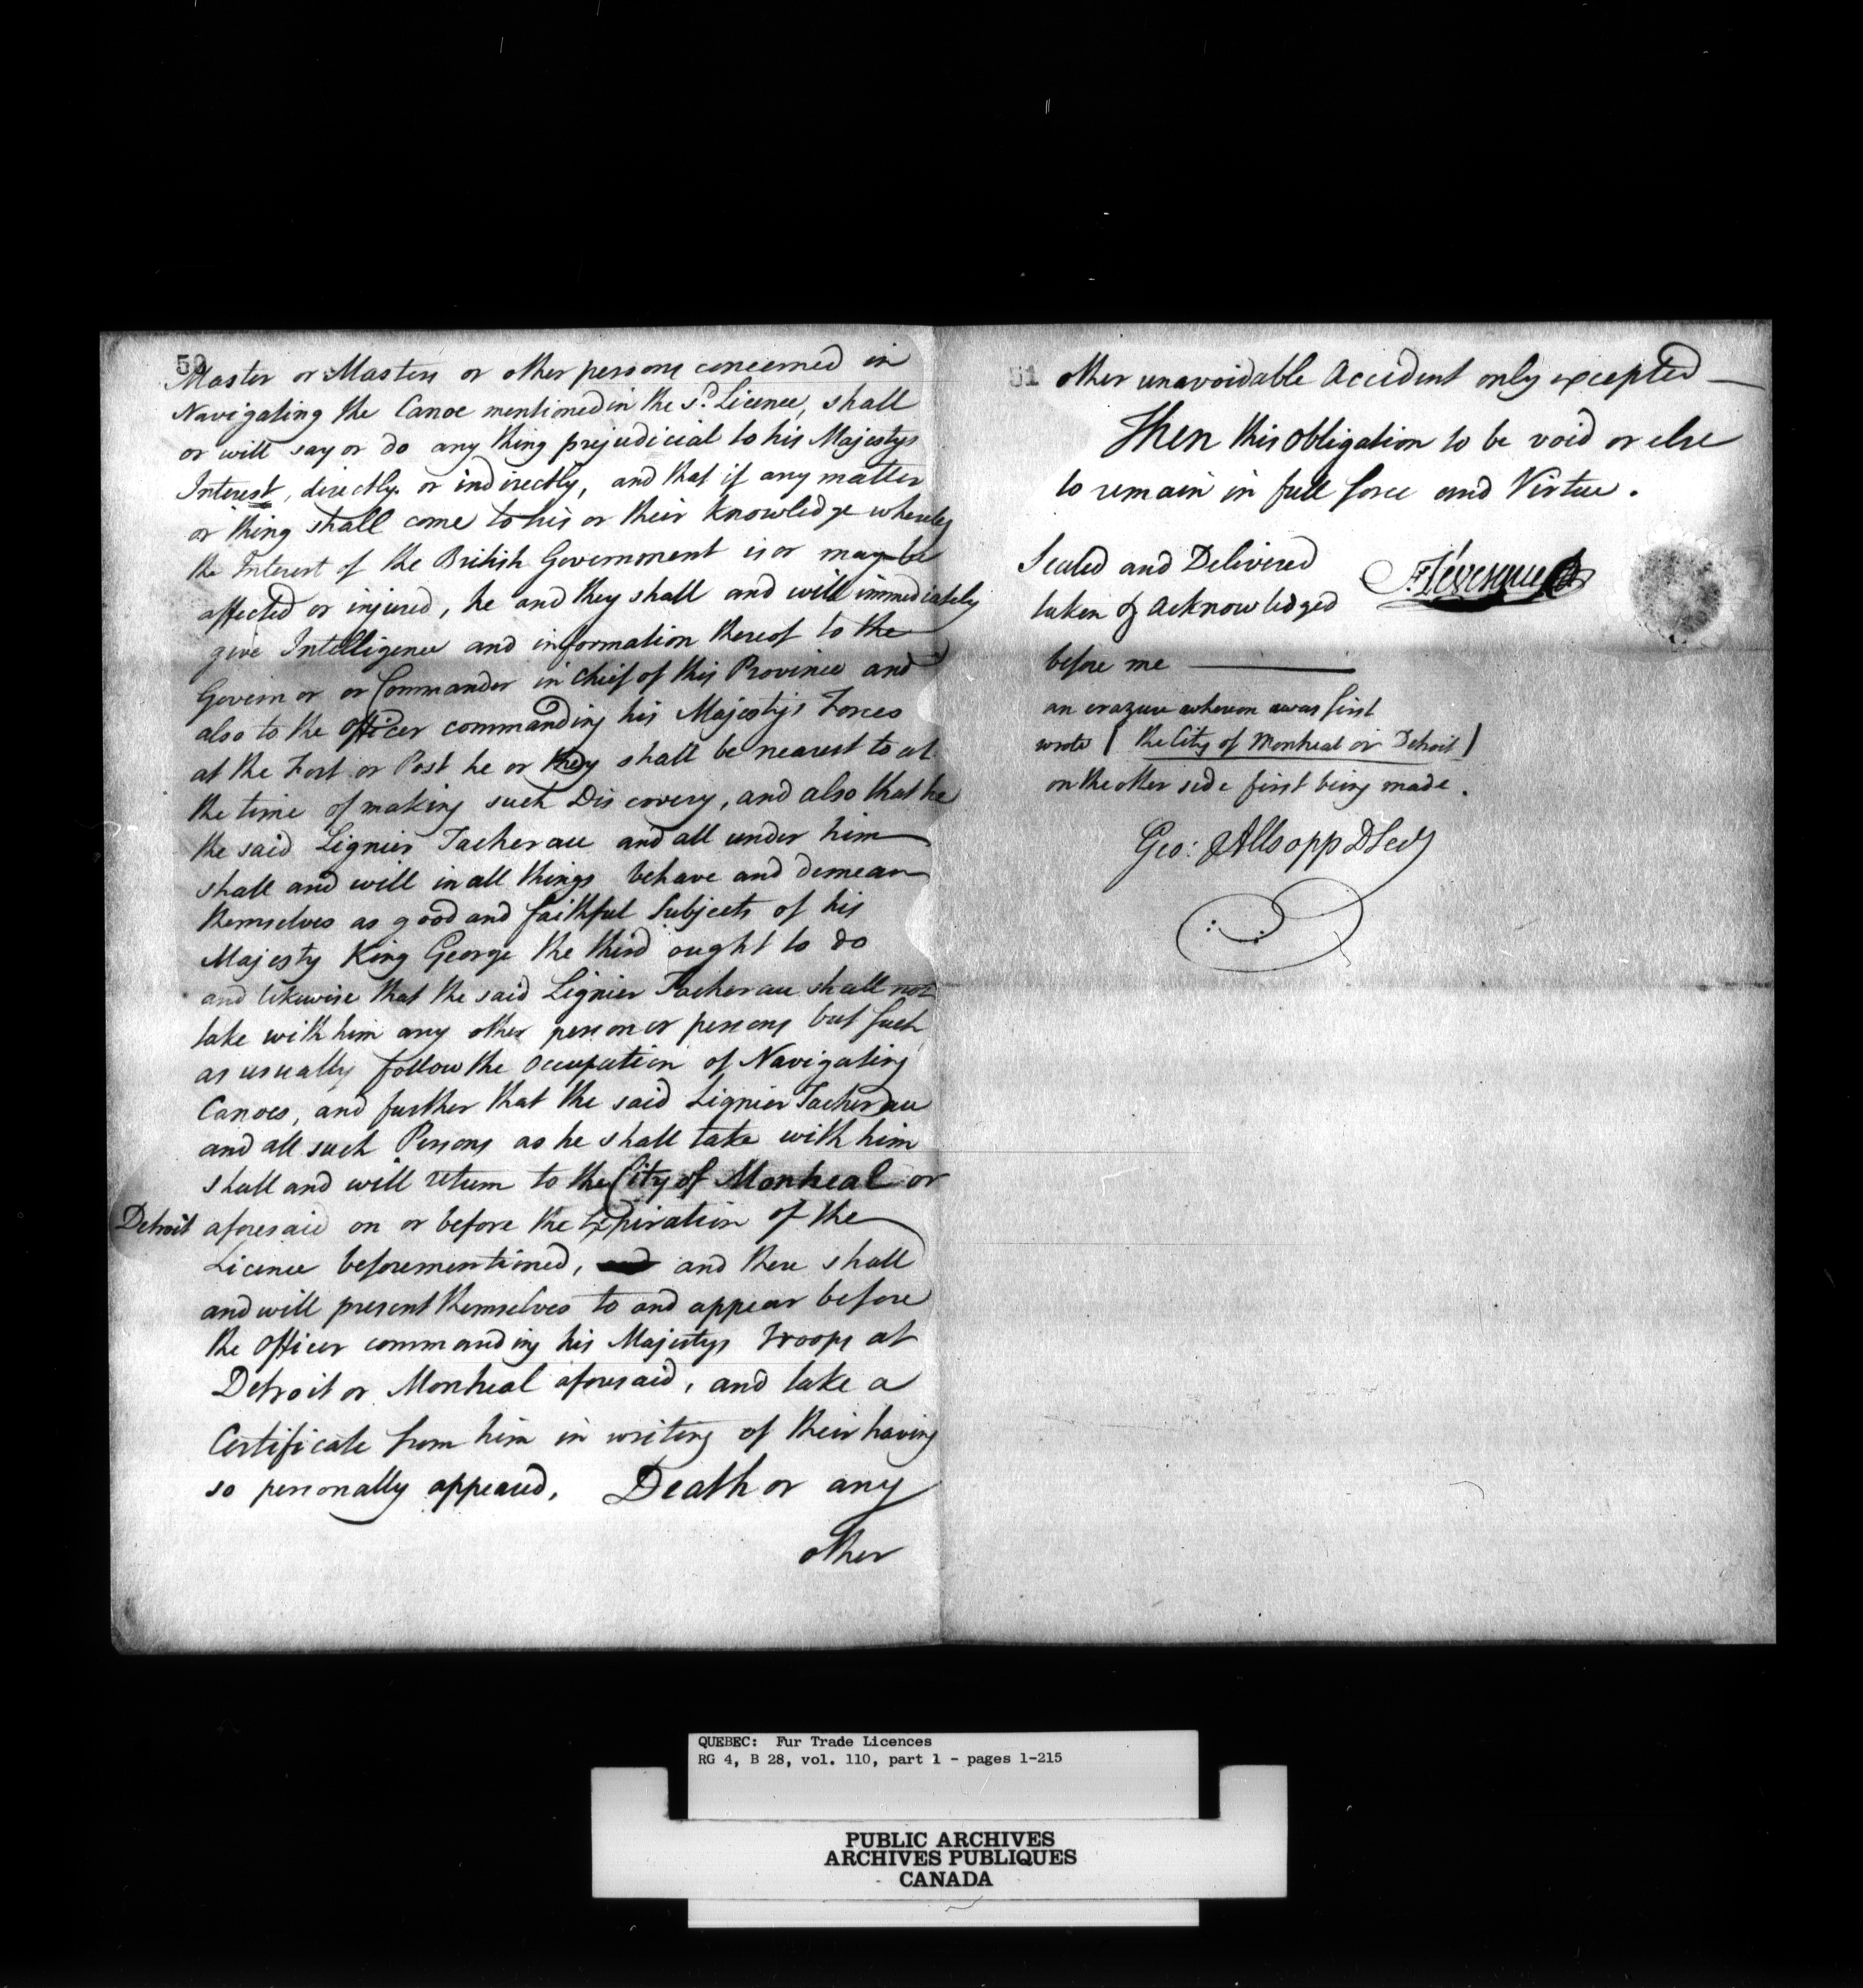 50
Master or Masters or other persons concerned in
Navigating the Canoe mentioned in the sd. Licence, shall
or will say or do any thing prejudicial to his Majestys
Interest, directly or indirectly, and that if any matter
or thing shall come to his or their knowledge whereby
the Interest of the British Government is or may be
affected or injured, he and they shall and will immediately
give Intelligence and information thereof to the
Governor or Commander in chief of this Province and
also to the Officer commanding his Majesty's Forces
at the Fort or Post he or they shall be nearest to at
the time of making such Discovery, and also that he
the said Lignier Tacherau and all under him
shall and will in all things behave and demean
themselves as good and faithful Subjects of his
Majesty King George the third ought to do
and likewise that the said Lignier Tacherau shall not
take with him any other person or persons but such
as usually follow the occupation of Navigating
Canoes, and further that the said Lignier Tacherau
and all such Persons as he shall take with him
shall and will return to the City of Montreal or
Detroit aforesaid on or before the Expiration of the
Licence beforementioned, and there shall
and will present themselves to and appear before
the Officer commanding his Majestys Troops at
Detroit or Montreal aforesaid, and take a
Certificate from him in writing of their having
so personally appeared, Death or any
other
51
other unavoidable Accident only excepted —
Then this obligation to be void or else
to remain in full force and Virtue.
Sealed and Delivered
taken & Acknowledged
before me
F. Lévesque
an erazure whereon was first
wrote ( the City of Montreal or Detroit )
on the other side first being made.
Geo: Allsopp DSecy
QUEBEC: Fur Trade Licences
RG 4, B 28, vol. 110, part 1 - pages 1-215
PUBLIC ARCHIVES
ARCHIVES PUBLIQUES
CANADA